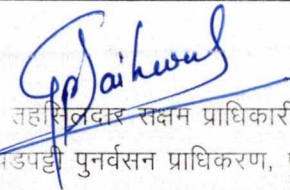 तहसिलदार सक्षम प्राधिकारी
पडपट्टी पुनर्वसन प्राधिकरण,